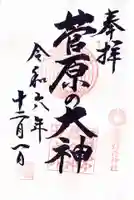 奉拝
菅原の大神
令和六年
十二月一日